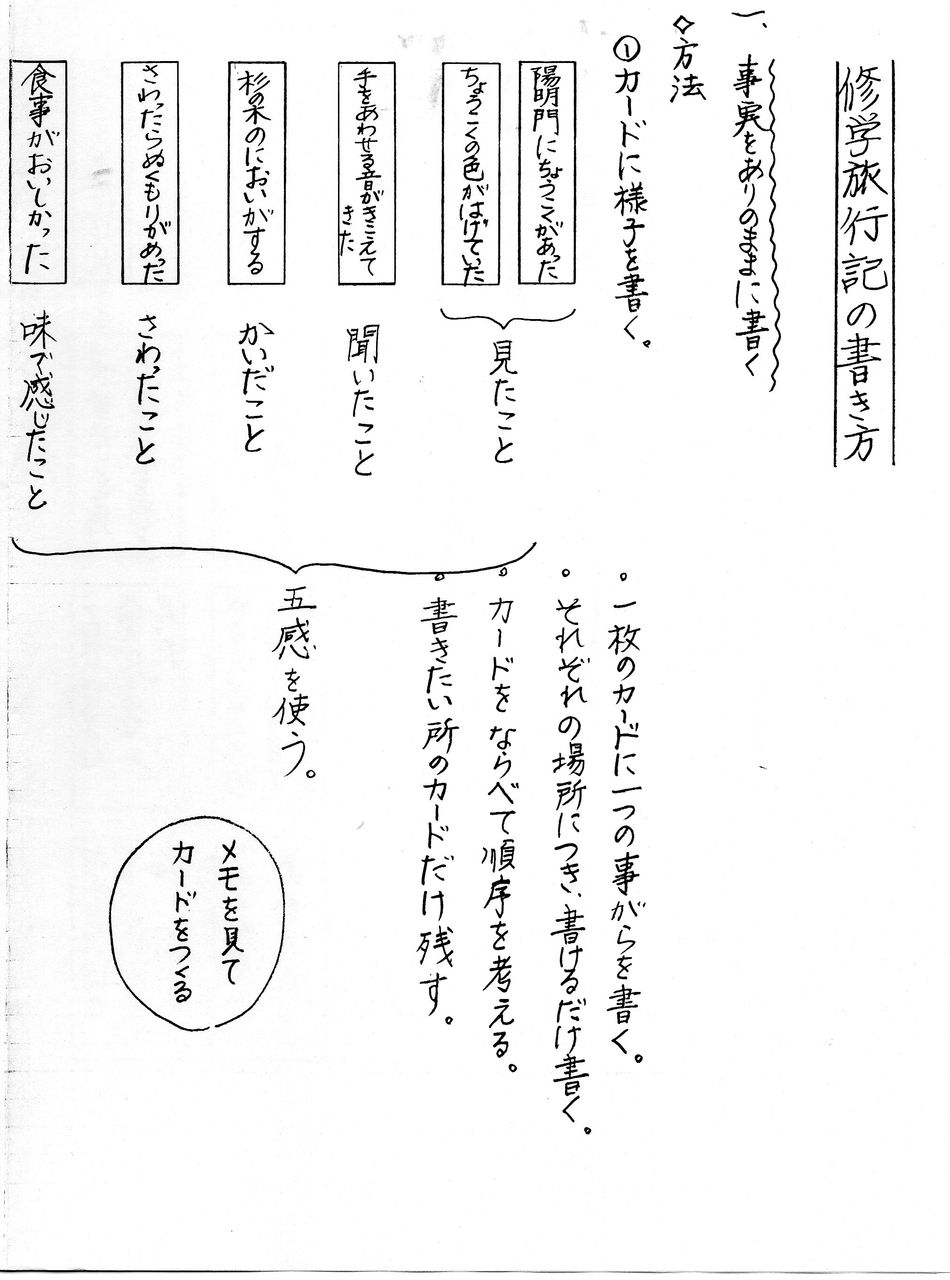 修学旅行記の書き方
一、事実をありのままに書く
◇方法
①カードに様子を書く。
陽明門にちょうこくがあった
ちょうこくの色がはげていた
見たこと
手をあわせる音がきこえて
きた
聞いたこと
杉の木のにおいがする
かいだこと
さわったらぬくもりがあった
さわったこと
食事がおいしかった
味で感じたこと
。一枚のカードに一つの事がらを書く。
。それぞれの場所につき、書けるだけ書く。
。カードをならべて順序を考える。
。書きたい所のカードだけ残す。
五感を使う。
メモを見て
カードをつくる